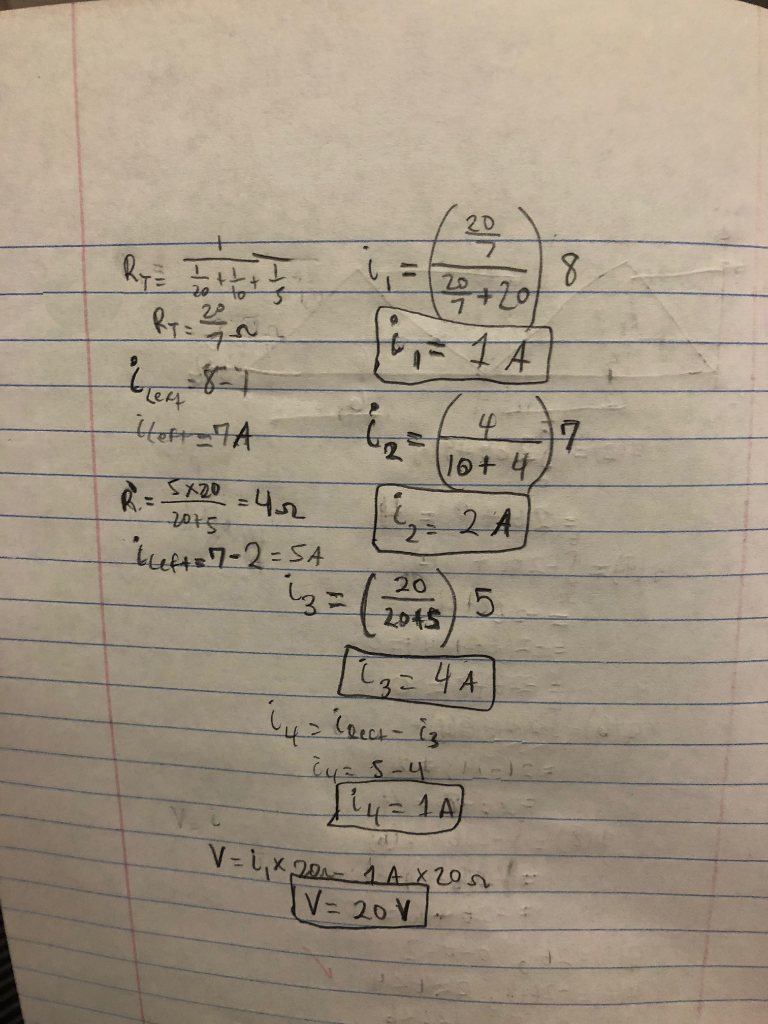 R_T = 1 / (1/20 + 1/10 + 1/5)
R_T = 20/7 Ω
i_Left = 8 - 1
i_Left = 7A
R = 5 x 20 / 20+5 = 4Ω
i_Left = 7 - 2 = 5A
i_1 = ((20/7) / (20/7 + 20)) 8
i_1 = 1 A
i_2 = (4 / (10 + 4)) 7
i_2 = 2 A
i_3 = (20 / (20+5)) 5
i_3 = 4 A
i_4 = i_Left - i_3
i_4 = 5 - 4
i_4 = 1 A
V = i
V = i_1 x 20Ω = 1 A x 20 Ω
V = 20 V